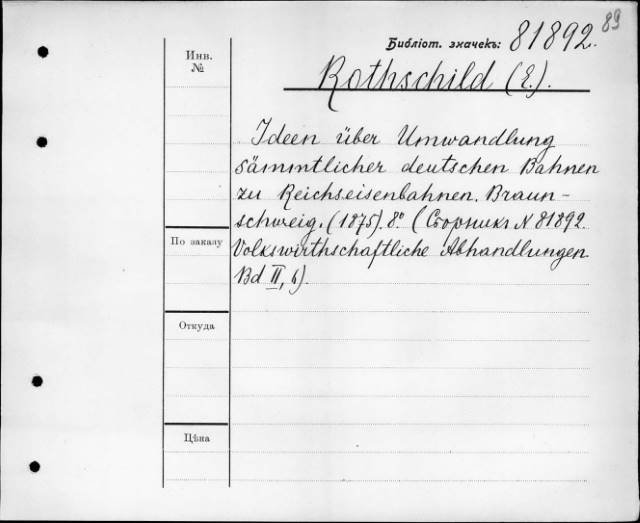 89
Библіот. значекъ: 81892.
Инв.
№
Rothschild (E.).
Ideen über Umwandlung
sämmtlicher deutschen Bahnen
zu Reichseisenbahnen. Braun-
schweig. (1875). 8°. (Сборникъ N 81892.
По заказу
Volkswirthschaftliche Abhandlungen
Bd II, 6).
Откуда
Цѣна